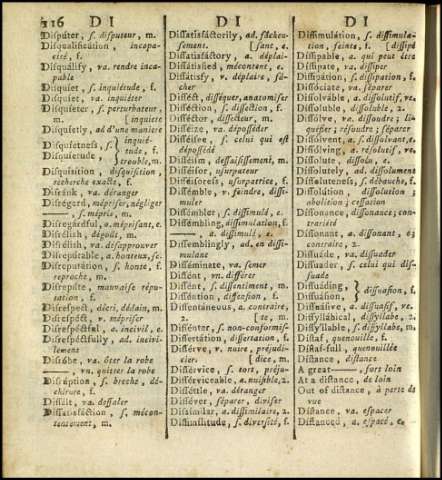 116 D I
Dispúter, s. disputeur, m.
Disqualificátion, incapa-
cité, f.
Disquálify, va. rendre inca-
pable
Disquíet, s. inquiétude, f.
Disquíet, va. inquiéter
Disquíeter, s. perturbateur,
m. [inquiete
Disquíetly, ad. d'une maniere
Disquíetness, s. } inquié-
Disquíetude, } tude, f.
trouble, m.
Disquisítion, disquisition,
recherche exacte, f.
Disránk, va. déranger
Disregárd, mépriser, négliger
——, s. mépris, m.
Disregárdful, a. méprisant, e.
Disrélish, dégoût, m.
Disrélish, va. désapprouver
Disréputable, a. honteux, se.
Disreputátion, s. honte, f.
reproche, m.
Disrepúte, mauvaise répu-
tation, f.
Disrespéct, décri, dédain, m.
Disrespéct, v. mépriser
Disrespéctful, a. incivil, e.
Disrespéctfully, ad. incivi-
lement
Disróbe, va. ôter la robe
——, vn. quitter la robe
Disrúption, s. breche, dé-
chirure, f.
Dissált, va. dessaler
Dissatisfáction, s. mécon-
tentement, m.
D I
Dissatisfáctorily, ad. fâcheu-
sement. [sant, e.
Dissatisfáctory, a. déplai-
Dissátisfied, mécontent, e.
Dissátisfy, v. déplaire, fâ-
cher
Disséct, disséquer, anatomiser
Disséction, s. dissection, f.
Disséctor, dissecteur, m.
Disséize, va. déposséder
Disséisee, s. celui qui est
dépossédé
Disséisin, dessaisissement, m.
Disséisor, usurpateur
Disséisoress, usurpatrice, f.
Dissémble, v. feindre, dissi-
muler
Dissémbler, s. dissimulé, e.
Dissémbling, dissimulation, f.
——, a. dissimulé, e.
Dissémblingly, ad. en dissi-
mulant
Disséminate, va. semer
Dissént, vn. différer
Dissént, s. dissentiment, m.
Disséntion, dissension, f.
Dissentáneous, a. contraire,
2. [te, m.
Dissénter, s. non-conformis-
Dissertátion, dissertation, f.
Dissérve, v. nuire, préjudi-
cier [dice, m.
Dissérvice, s. tort, préju-
Dissérviceable, a. nuisible, 2.
Dissétle, va. déranger
Disséver, séparer, diviser
Dissímilar, a. dissimilaire, 2.
Dissimílitude, s. diversité, f.
D I
Dissimulátion, s. dissimula-
tion, feinte, f. [dissipé
Díssipable, a. qui peut être
Díssipate, va. dissiper
Dissipátion, s. dissipation, f.
Dissóciate, va. séparer
Dissólvable, a. dissolutif, ve.
Díssoluble, dissoluble, 2.
Dissólve, ve. dissoudre; li-
quéfier; résoudre; séparer
Dissólvent, a. s. dissolvant, e.
Dissólving, a. résolutif, ve.
Díssolute, dissolu, e.
Díssolutely, ad. dissolument
Díssoluteness, s. débauche, f.
Dissolútion, dissolution;
abolition; cessation
Díssonance, dissonance; con-
trariété
Díssonant, a. dissonant, e;
contraire, 2.
Dissuáde, va. dissuader
Dissuáder, s. celui qui dis-
suade
Dissuáding, } dissuasion, f.
Dissuásion,
Dissuásive, a. dissuasif, ve.
Dissyllábical, dissyllabe, 2.
Dissýllable, s. dissyllabe, m.
Distaf, quenouille, f.
Distaf-full, quenouillée
Distance, distance
A great——, fort loin
At a distance, de loin
Out of distance, à perte de
vue
Distance, va. espacer
Distanced, a. espacé, e.